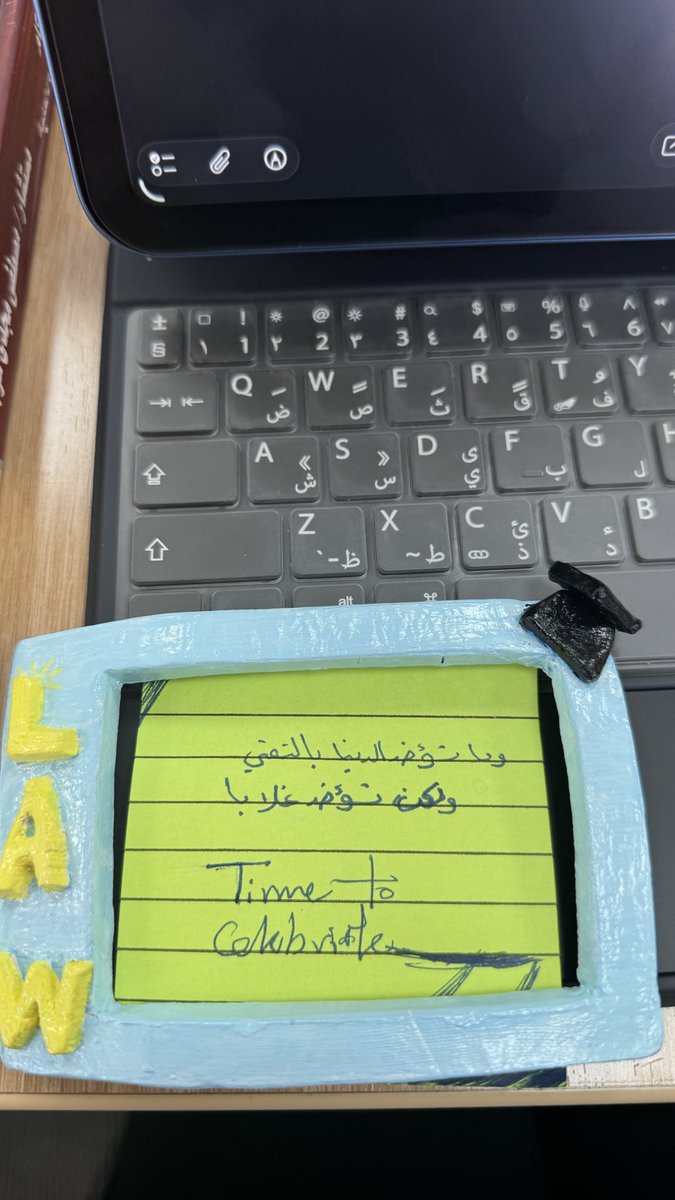 ± §
! ١ 1
@ ٢ 2
# ٣ 3
$ ٤ 4
% ٥ 5
^ ٦ 6
٧
Q ض
W ص
E ث
R ق
T ف
Y
A » ش
S « س
D ى ي
F ب
G ل
Z ظ
X ~ ط
C ئ ذ
V ء
B
alt ⌘
L
A
W
وما تؤخذ الدنيا بالتمني
ولكن تؤخذ غلابا
Time to
Celebrate